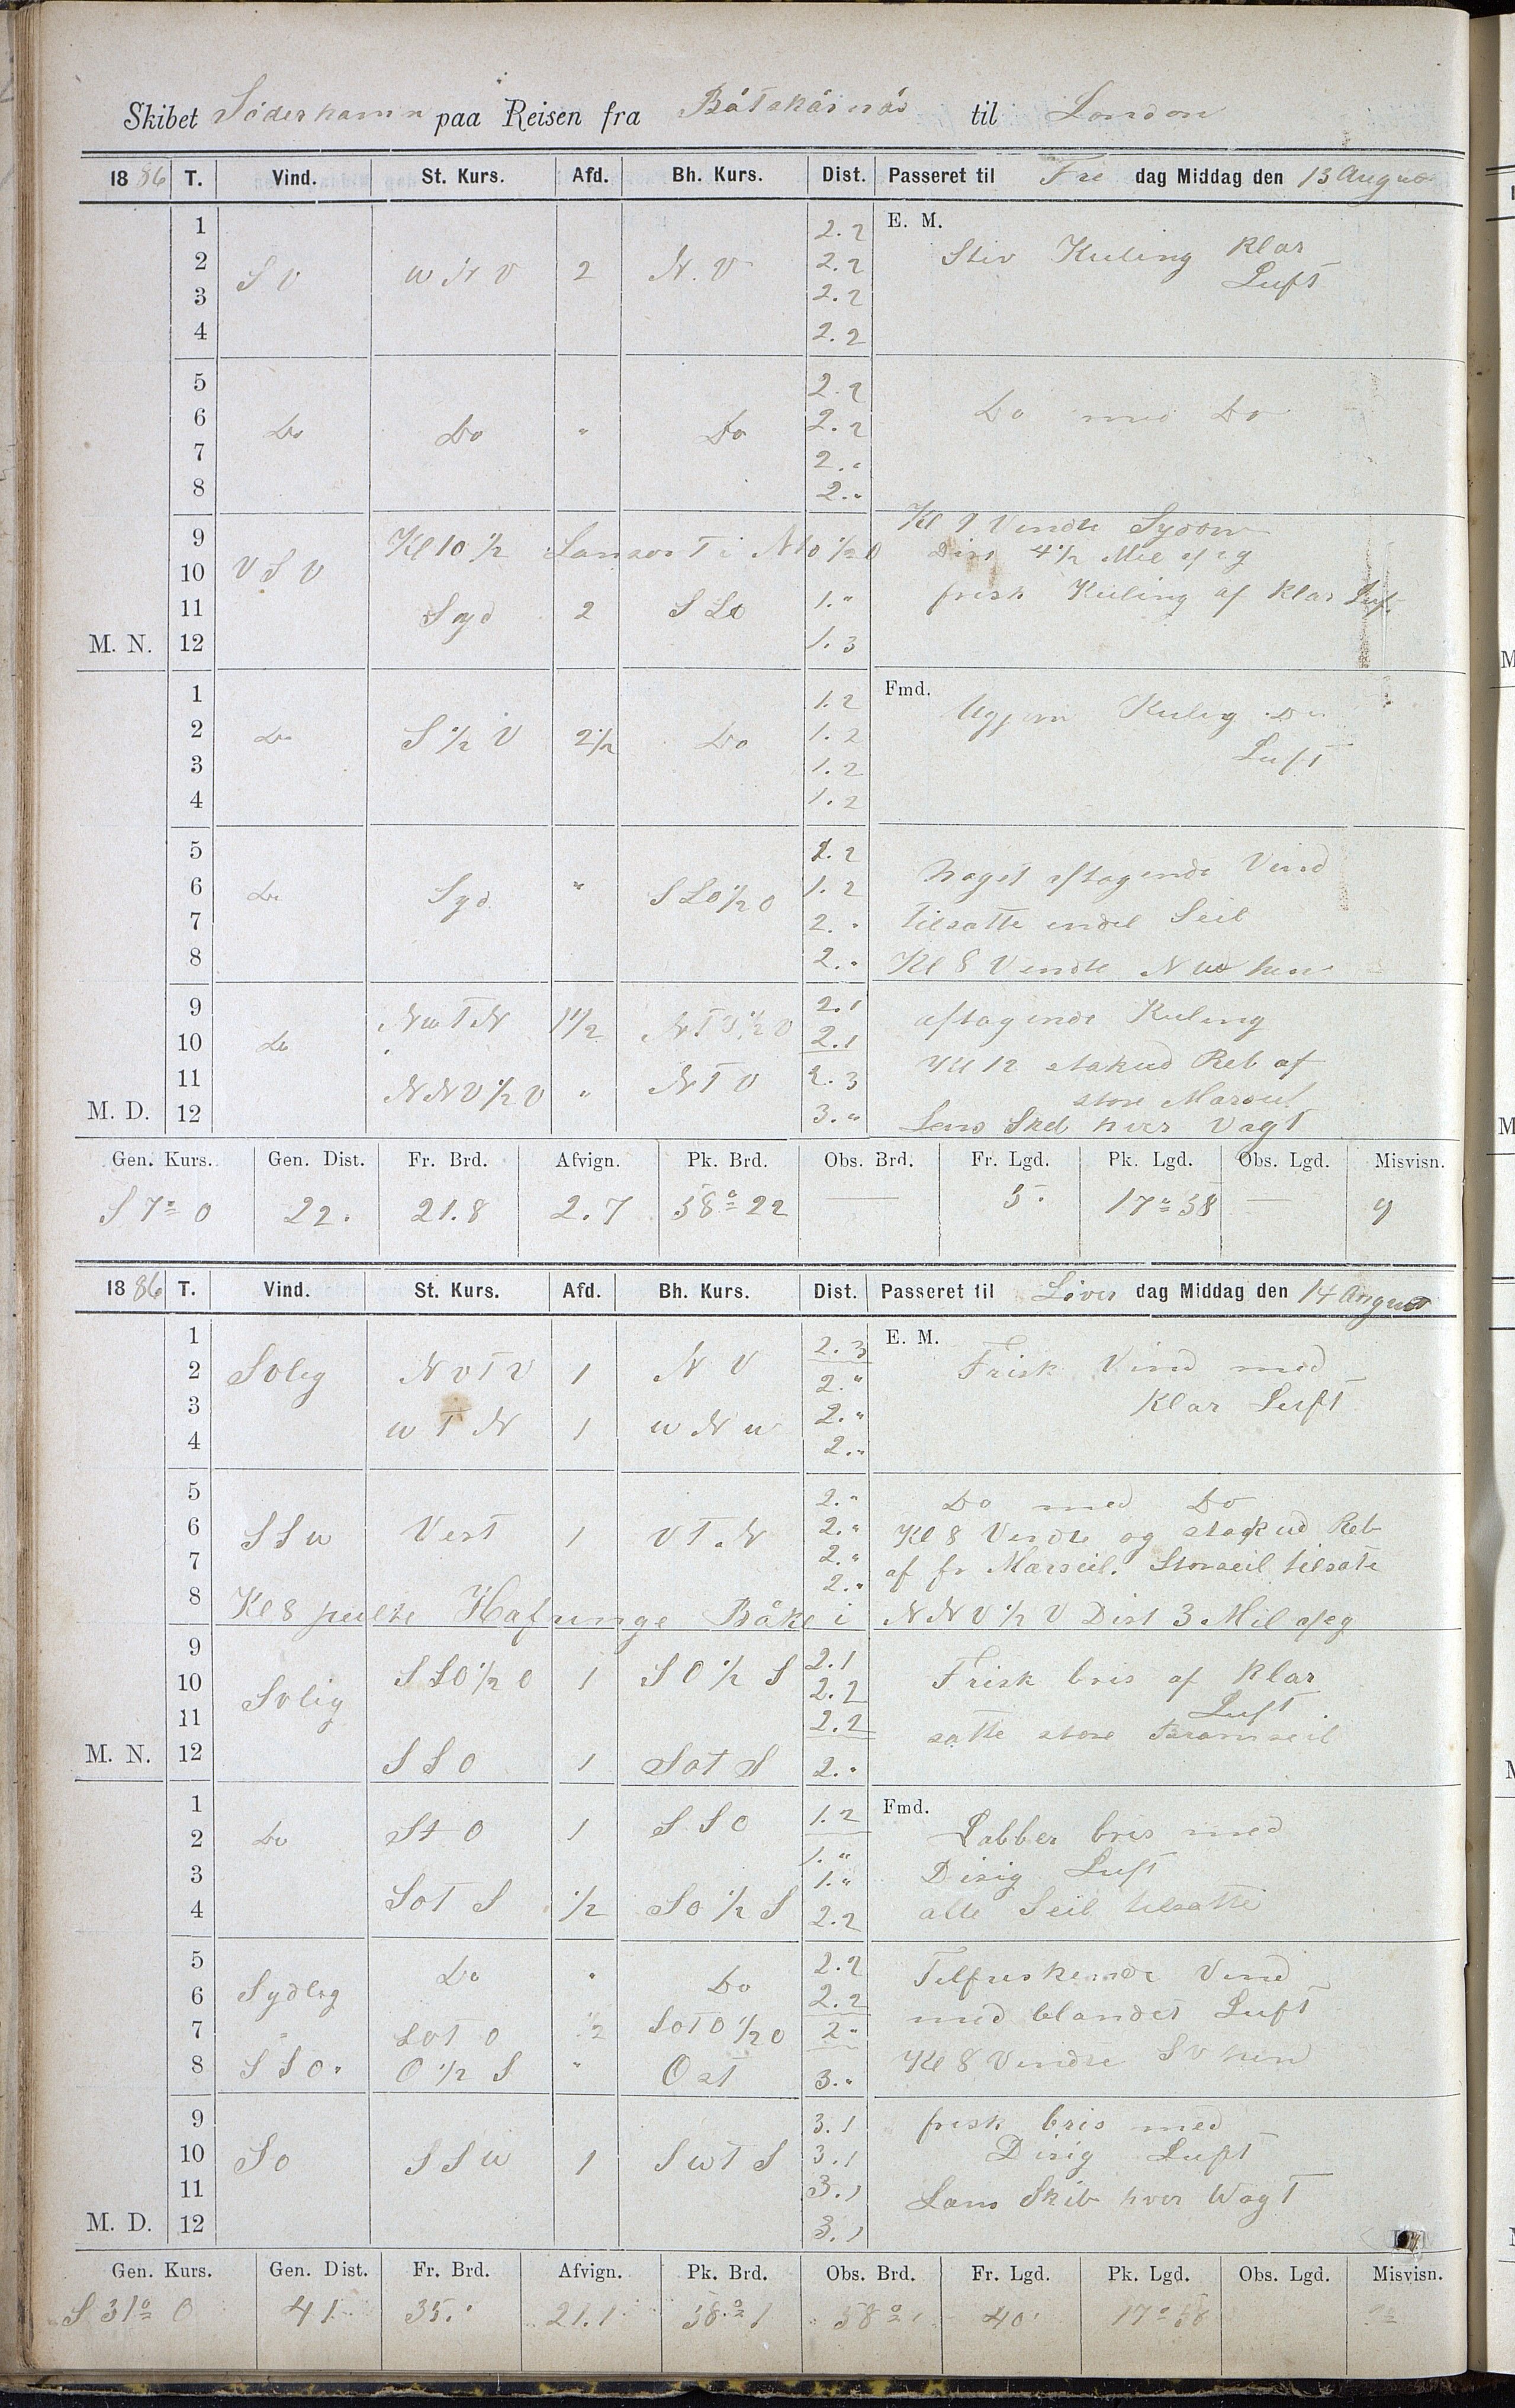 Skibet Söderhamn paa Reisen fra Båtskärnäs til London
1886 T. Vind. St. Kurs. Afd. Bh. Kurs. Dist. Passeret til Fre dag Middag den 13 August
1 2.2 E. M.
2 S V W N V 2 N. V 2.2 Stiv Kuling Klar
3 2.2 Luft
4 2.2
5 2.2
6 Do Do " Do 2.2 Do med Do
7 2."
8 2."
9 Kl 10 1/2 Landsort i N t O 1/2 O Kl 9 Vendte Sydover
10 V S V Dist 4 1/2 Mil afsg
11 Syd 2 S S O 1." frisk Kuling af Klar Luf.
M. N. 12 1.3
1 1.2 Fmd.
2 Do S 1/2 V 2 1/2 Do 1.2 Ugjevn Kulig Do
3 1.2 Luft
4 1.2
5 1.2
6 Do Syd " S S O 1/2 O 1.2 Noget aftagende Vind
7 2." tilsatte endel Seil
8 2." Kl 8 Vendte N W hen
9 N W T N 1 1/2 N T V 1/2 V 2.1 aftagende Kuling
10 Do 2.1
11 N N V 1/2 V " N T V 2.3 Kl 12 stak ud Reb af
store Marseil
M. D. 12 3." Lens Skib hver Vagt
Gen. Kurs. Gen. Dist. Fr. Brd. Afvign. Pk. Brd. Obs. Brd. Fr. Lgd. Pk. Lgd. Obs. Lgd. Misvisn.
S 7° O 22. 21.8 2.7 58° 22 — 5. 17° 58 — 9
1886 T. Vind. St. Kurs. Afd. Bh. Kurs. Dist. Passeret til Löver dag Middag den 14 August
1 2.3 E. M.
2 Svlig N V T V 1 N V 2." Frisk Vind med
3 W T N 1 W N W 2." Klar Luft
4 2."
5 2." Do med Do
6 S S W Vest 1 V T. N 2." Kl 8 Vendte og stak ud Reb
7 2." af fr Marseil. Storseil tilsate
8 2."
Kl 8 peilte Hafringe Båke i N N V 1/2 V Dist 3 Mil afsg
9 S S O 1/2 O 1 S O 1/2 S 2.1
10 Svlig 2.2 Frisk bris af Klar
11 2.2 Luft
M. N. 12 S S O 1 S O T S 2." satte store Bramseil
1 S t O 1 S S O 1.2 Fmd.
2 Do 1." Labber bris med
3 1." Disig Luft
4 S O T S 1/2 S O 1/2 S 2.2 alle Seil tilsatte
5 Do " Do 2.2 Tilfriskende Vind
6 Sydlig 2.2 med blandet Luft
7 " S O T O 1/2 S O T O 1/2 O 2."
8 S S O. O 1/2 S " Ost 3." Kl 8 Vendte S V hen
9 3.1 frisk bris med
10 S O S S W 1 S W T S 3.1 Disig Luft
11 3.1 Lens Skib hver Wagt
M. D. 12 3.1
Gen. Kurs. Gen. Dist. Fr. Brd. Afvign. Pk. Brd. Obs. Brd. Fr. Lgd. Pk. Lgd. Obs. Lgd. Misvisn.
S 31° O 41. 35. 21.1 58° 1 58° 1 40' 17° 58